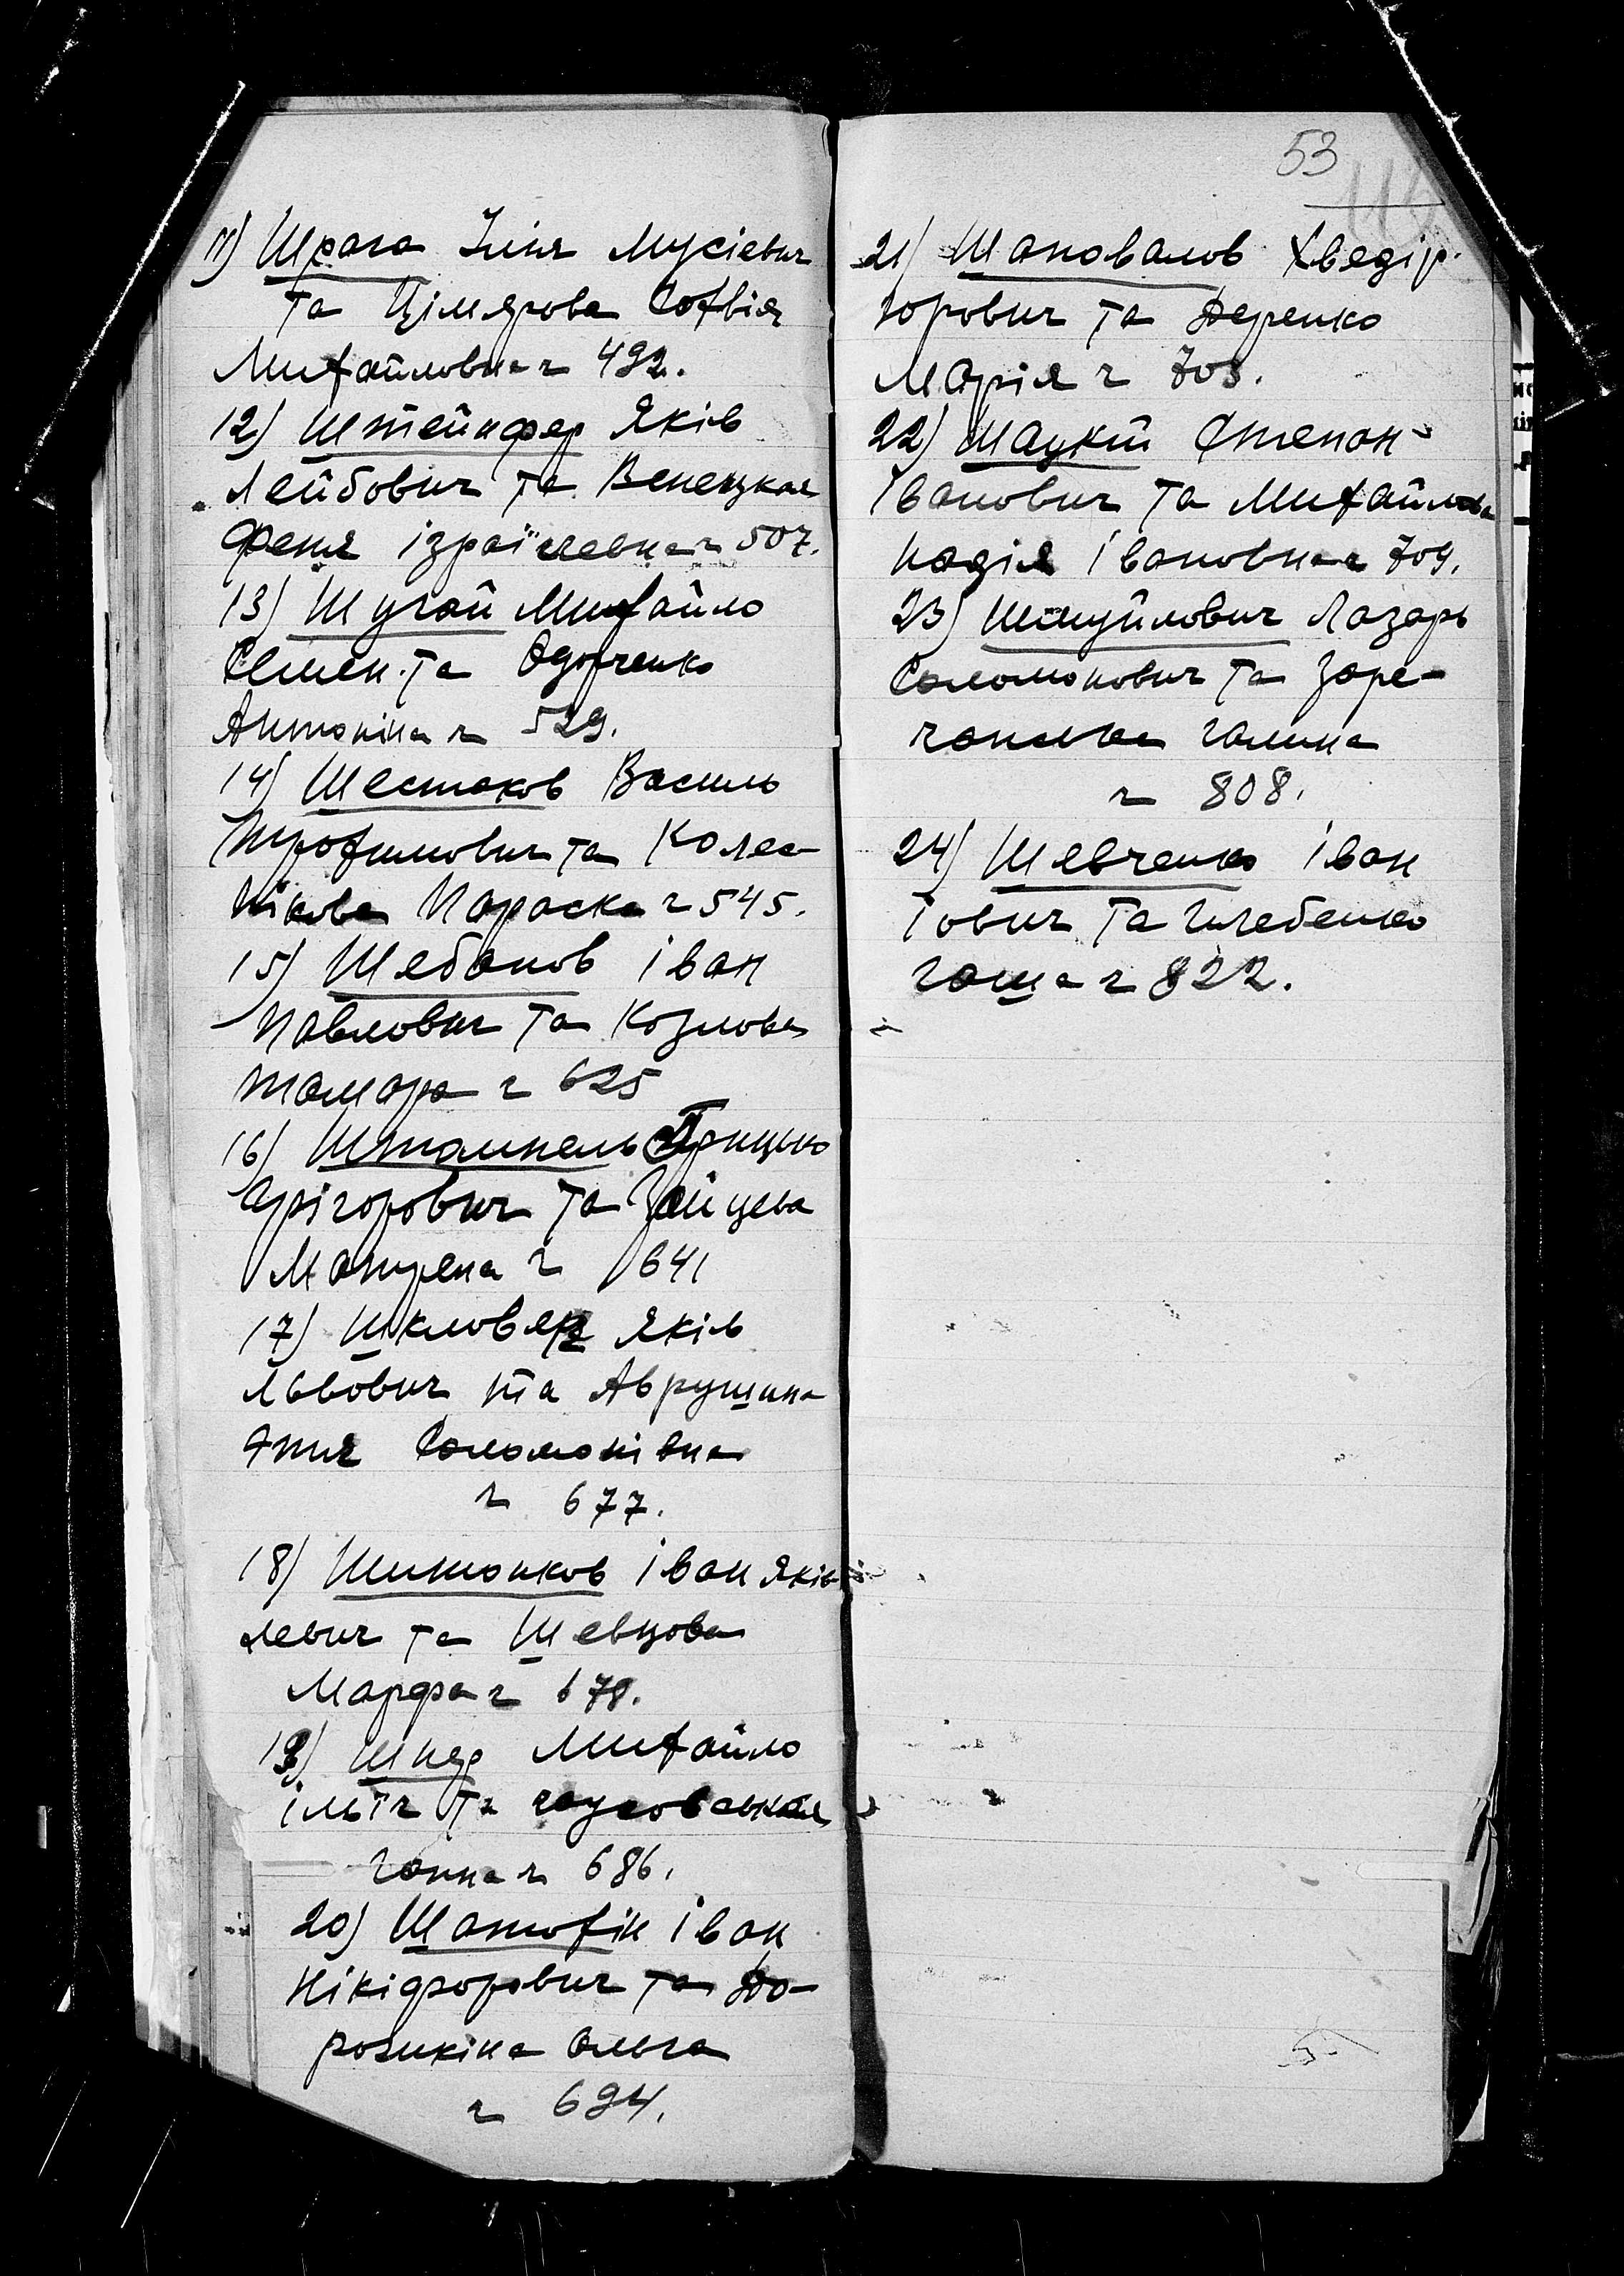 11) Шрага Ілія Мусієвич
та Цімлярова Софвія
Михайловна ч 492.
12) Штейнфер Яків
Лейбович та Венецкая
Феня ізраїлевна ч 507.
13) Шугай Михайло
Семен. та Одорченко
Антоніна ч 529.
14) Шестаков Василь
Трофимович та Колес-
нікова Параска ч 545.
15) Шебанов іван
Павлович та Козлова
Тамара ч 625
16) Штампель Грицько
Грігорович та Зайцева
Мотрена ч 641
17) Шкловер Яків
Львович та Аврушина
Соломонівна
ч 677.
18) Шитонков іван Яків
левич та Шевцова
Марфа ч 678.
19) Шнер Михайло
ілліч та
ганна ч 686.
20) Шатохін іван
Нікіфорович та До-
рошкіна Ольга
ч 694.
53
21) Шаповалов Хведір
горович та Деренко
Марія ч 703.
22) Шацкій Степан
івановіч та Михайлова
надія івановна ч 709.
23) Шмуйлович Лазарь
Соломонович та Заре-
чанская галина
ч 808.
24) Шевченко іван
іович та глебенко
гаша ч 822.